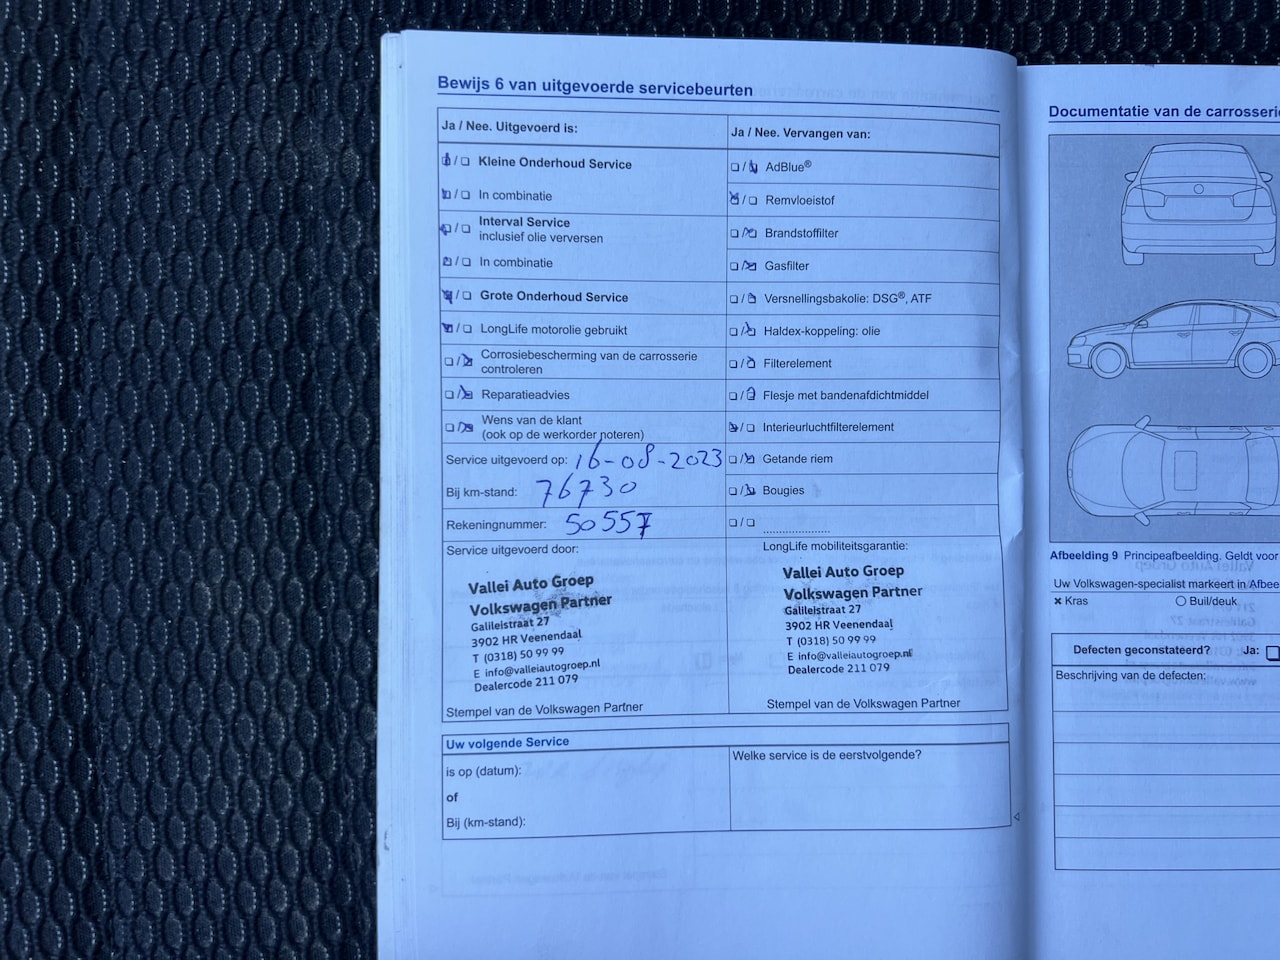 Bewijs 6 van uitgevoerde servicebeurten
Ja / Nee. Uitgevoerd is:
/ Kleine Onderhoud Service
/ In combinatie
/ Interval Service
inclusief olie verversen
/ In combinatie
/ Grote Onderhoud Service
/ LongLife motorolie gebruikt
/ Corrosiebescherming van de carrosserie
controleren
/ Reparatieadvies
/ Wens van de klant
(ook op de werkorder noteren)
Service uitgevoerd op: 16-08-2023
Bij km-stand: 76730
Rekeningnummer: 50557
Service uitgevoerd door:
Vallei Auto Groep
Volkswagen Partner
Galileistraat 27
3902 HR Veenendaal
T (0318) 50 99 99
E info@valleiautogroep.nl
Dealercode 211 079
Stempel van de Volkswagen Partner
Ja / Nee. Vervangen van:
/ AdBlue®
/ Remvloeistof
/ Brandstoffilter
/ Gasfilter
/ Versnellingsbakolie: DSG®, ATF
/ Haldex-koppeling: olie
/ Filterelement
/ Flesje met bandenafdichtmiddel
/ Interieurluchtfilterelement
/ Getande riem
/ Bougies
/ ....................
LongLife mobiliteitsgarantie:
Vallei Auto Groep
Volkswagen Partner
Galileistraat 27
3902 HR Veenendaal
T (0318) 50 99 99
E info@valleiautogroep.nl
Dealercode 211 079
Stempel van de Volkswagen Partner
Uw volgende Service
is op (datum):
of
Bij (km-stand):
Welke service is de eerstvolgende?
Documentatie van de carrosserie
Afbeelding 9 Principeafbeelding. Geldt voor
Uw Volkswagen-specialist markeert in Afbee
Kras Buil/deuk
Defecten geconstateerd? Ja:
Beschrijving van de defecten: